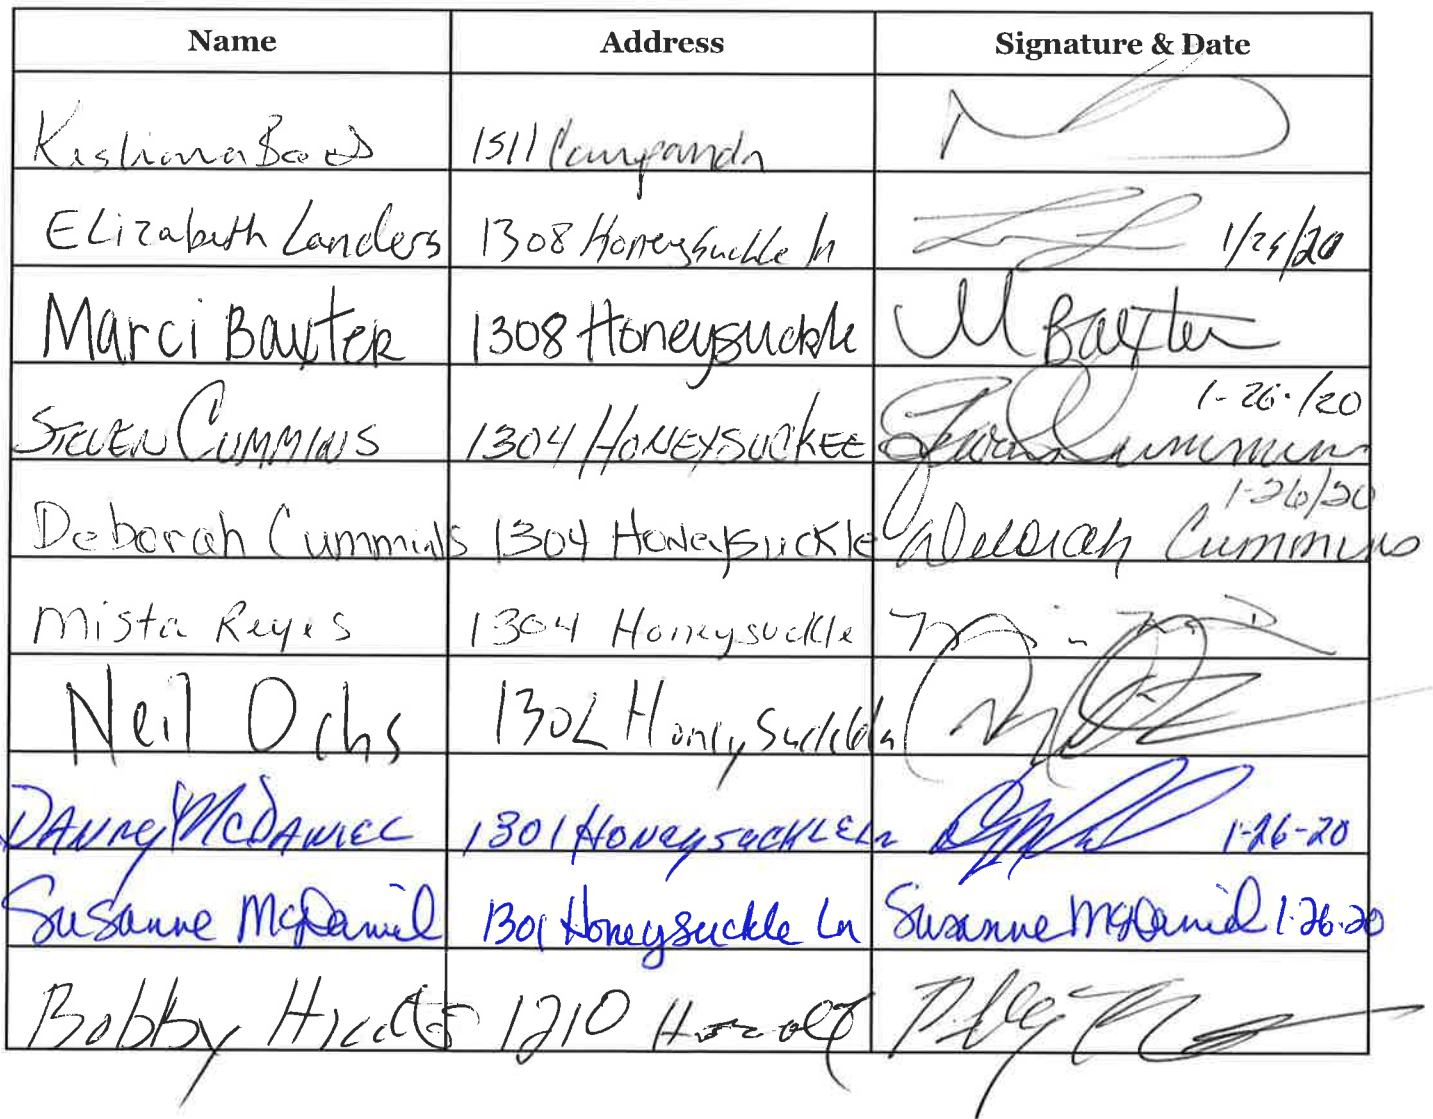 Name Address Signature & Date
1511
Elizabeth Landers 1308 Honeysuckle ln 1/25/20
Marci Baxter 1308 Honeysuckle M Baxter
1-26-/20
Steven Cummins 1304 Honeysuckee Steven Cummins
1-26/20
Deborah Cummins 1304 Honeysuckle Deborah Cummins
Mista Reyes 1304 Honeysuckle
Neil Ochs 1302 Honeysuckle ln
Danny McDaniel 1301 Honeysuckle Ln 1-26-20
Susanne McDaniel 1301 Honeysuckle Ln Susanne McDaniel 1-26-20
Bobby 1210